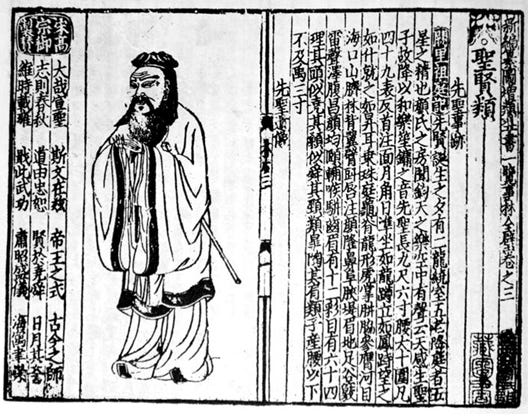 新編纂圖增類群書一覽事林全璧卷之三
聖賢類
先聖事跡
闕里祖庭記先聖誕生之夕有二龍繞室五老降庭者五
星之精也顏氏之方聞鈞天之樂空中有聲云天感生聖
子故降以和樂笙鏞之音先聖長九尺六寸腰大十圍凡
四十九表反首洼面月角日準坐如龍蹲立如鳳峙望之
如仆就之如昇耳垂珠庭龜脊龍形虎掌胼脇參膺河目
海口山臍林背翼臂注頭隆鼻阜眉地足谷竅
雷聲澤腹昌顏均頤輔喉駢齒眉有一十二彩目有六十四
理其頭似堯其顙似舜其項類皋陶其肩類子產腰以下
不及禹三寸
先聖遺像
宋高宗御製贊
大哉宣聖 斯文在茲 帝王之式 古今之師
志則春秋 道由忠恕 賢於堯舜 日月其譽
維時載雍 戢此武功 肅昭盛儀 海寓聿崇